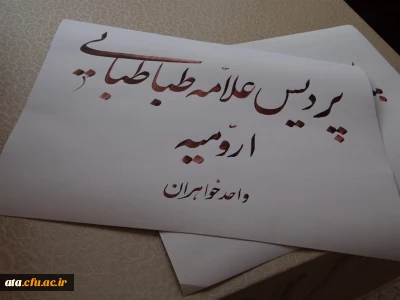 پردیس علّامه طباطبایی
ارومیّه
واحد خواهران
ata.cfu.ac.ir